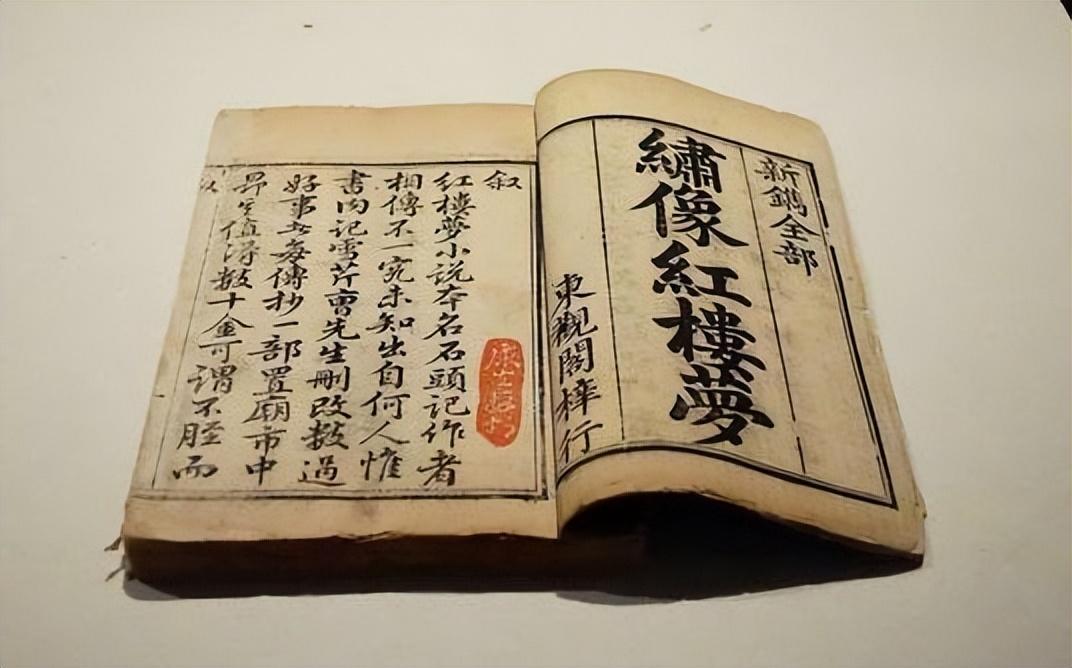 新鐫全部
繡像紅樓夢
東觀閣梓行
叙
紅樓夢小説夲名石頭記作者
相傳不一究未知出自何人惟
書内記雪芹曹先生刪改数過
好事者每傳抄一部置廟市中
昻其值得数十金可謂不脛而